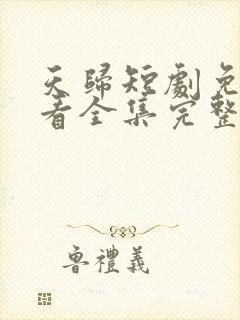 天歸短劇免
看全集完整
魯禮義